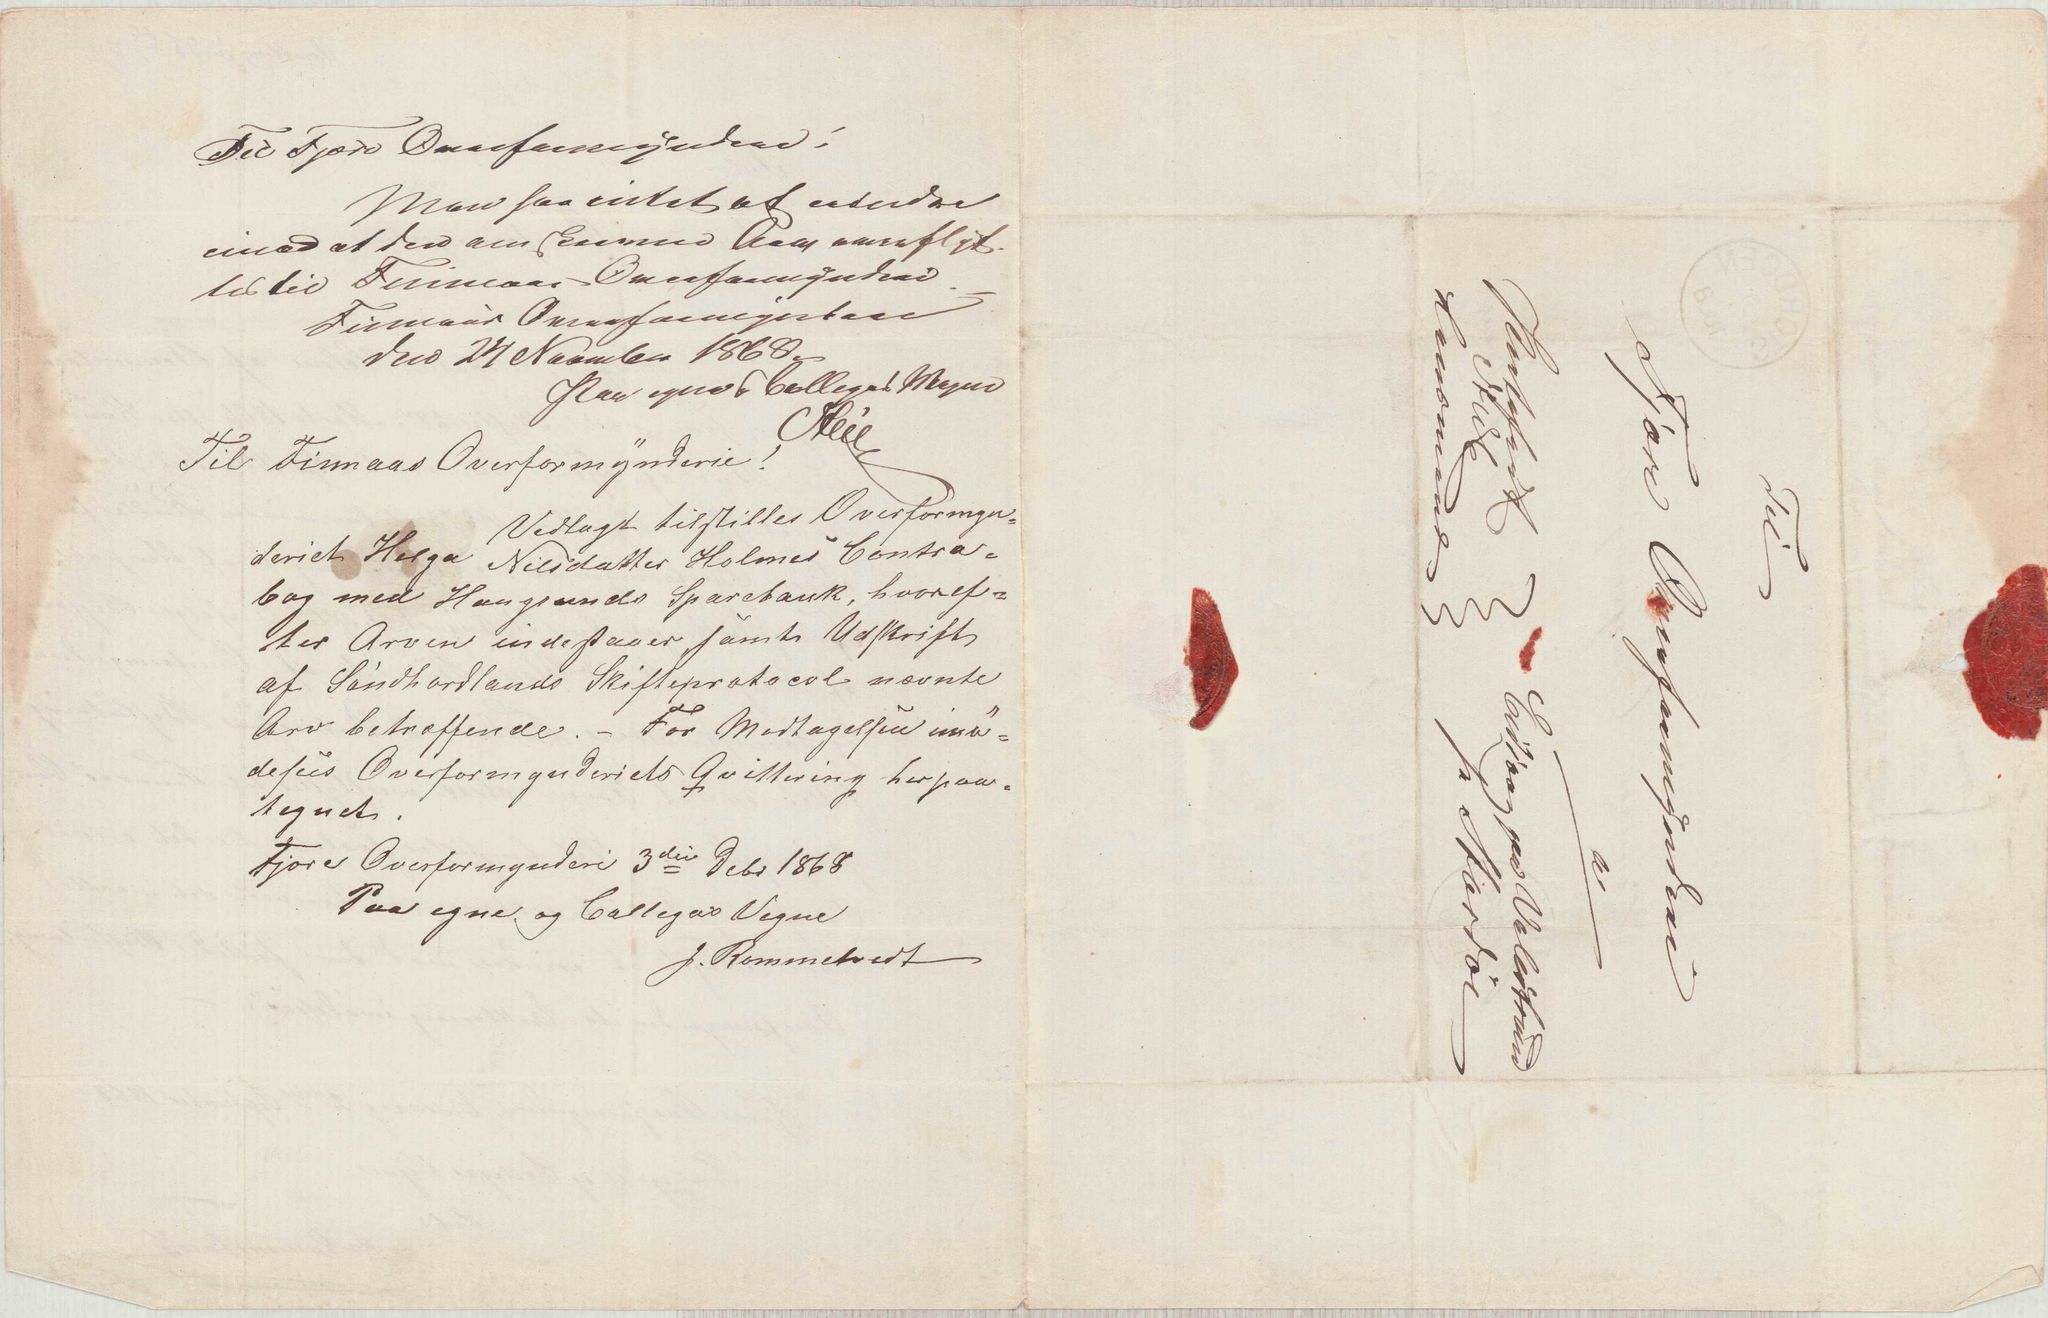 Til Fjære Overformynderie!
Man har intet at erindre
imod at den om Arv overflyt-
tes til Finnaas Overformynderie.
Finnaas Overformynderie
den 24 November 1868.
Paa egne & Collegas Vegne
Til Finnaas Overformÿnderie!
Vedlagt tilstilles Overformyn=
deriet Helga Nilsdatter Holmes Contra=
bog med Haugesunds Sparebank, hvoref=
ter Arven indestaaer, samt Udskrift
af Søndhordlands Skifteprotocol nævnte
Arv betræffende. – For Modtagelsen imø=
desees Overformynderiets Qvittering herpaa=
tegnet.
Fjøre Overformynderi 3die Debr 1868
Paa egne og Collegas Vegne
J. Rommetvedt
Til
Fjøre Overformynderie
a
Valestrand
pr Mardøe